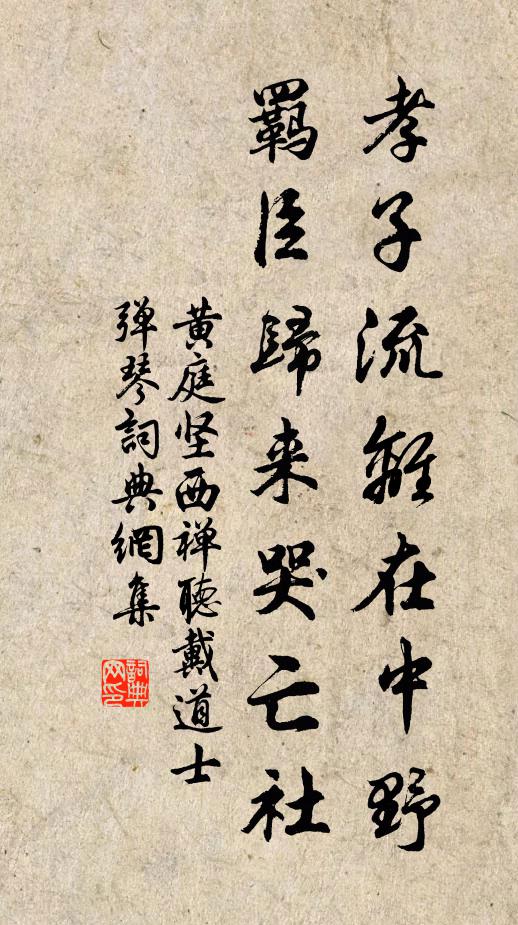 孝子流離在中野
羈臣歸来哭亡社
黄庭坚西禅聽戴道士
弹琴詞典網集
詞典
网印